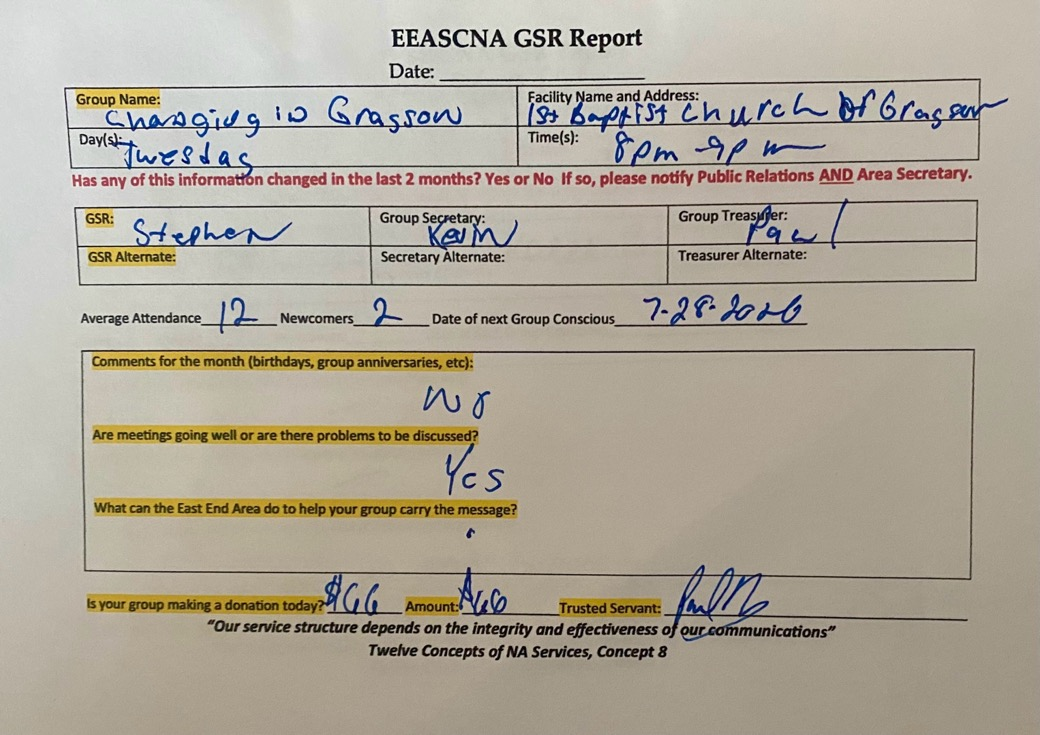 EEASCNA GSR Report
Date:
Group Name: Changing in Grayson
Facility Name and Address: 1st Baptist Church Of Grayson
Day(s): Tuesday
Time(s): 8pm - 9pm
Has any of this information changed in the last 2 months? Yes or No If so, please notify Public Relations AND Area Secretary.
GSR: Stephen
Group Secretary: Kevin
Group Treasurer: Paul
GSR Alternate:
Secretary Alternate:
Treasurer Alternate:
Average Attendance 12 Newcomers 2 Date of next Group Conscious 7-28-2026
Comments for the month (birthdays, group anniversaries, etc):
No
Are meetings going well or are there problems to be discussed?
Yes
What can the East End Area do to help your group carry the message?
Is your group making a donation today? $66 Amount: $66 Trusted Servant:
“Our service structure depends on the integrity and effectiveness of our communications”
Twelve Concepts of NA Services, Concept 8